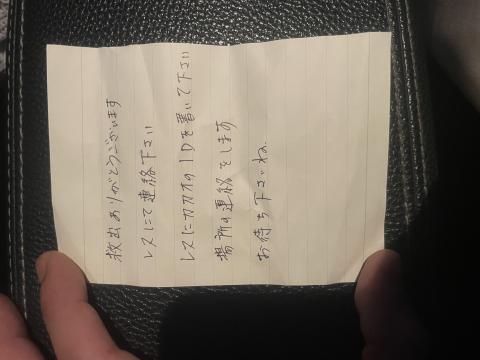 救出ありがとうございます
レスにて連絡下さい
レスにカカオのIDを書いて下さい
場所の連絡をします
お待ち下さいね